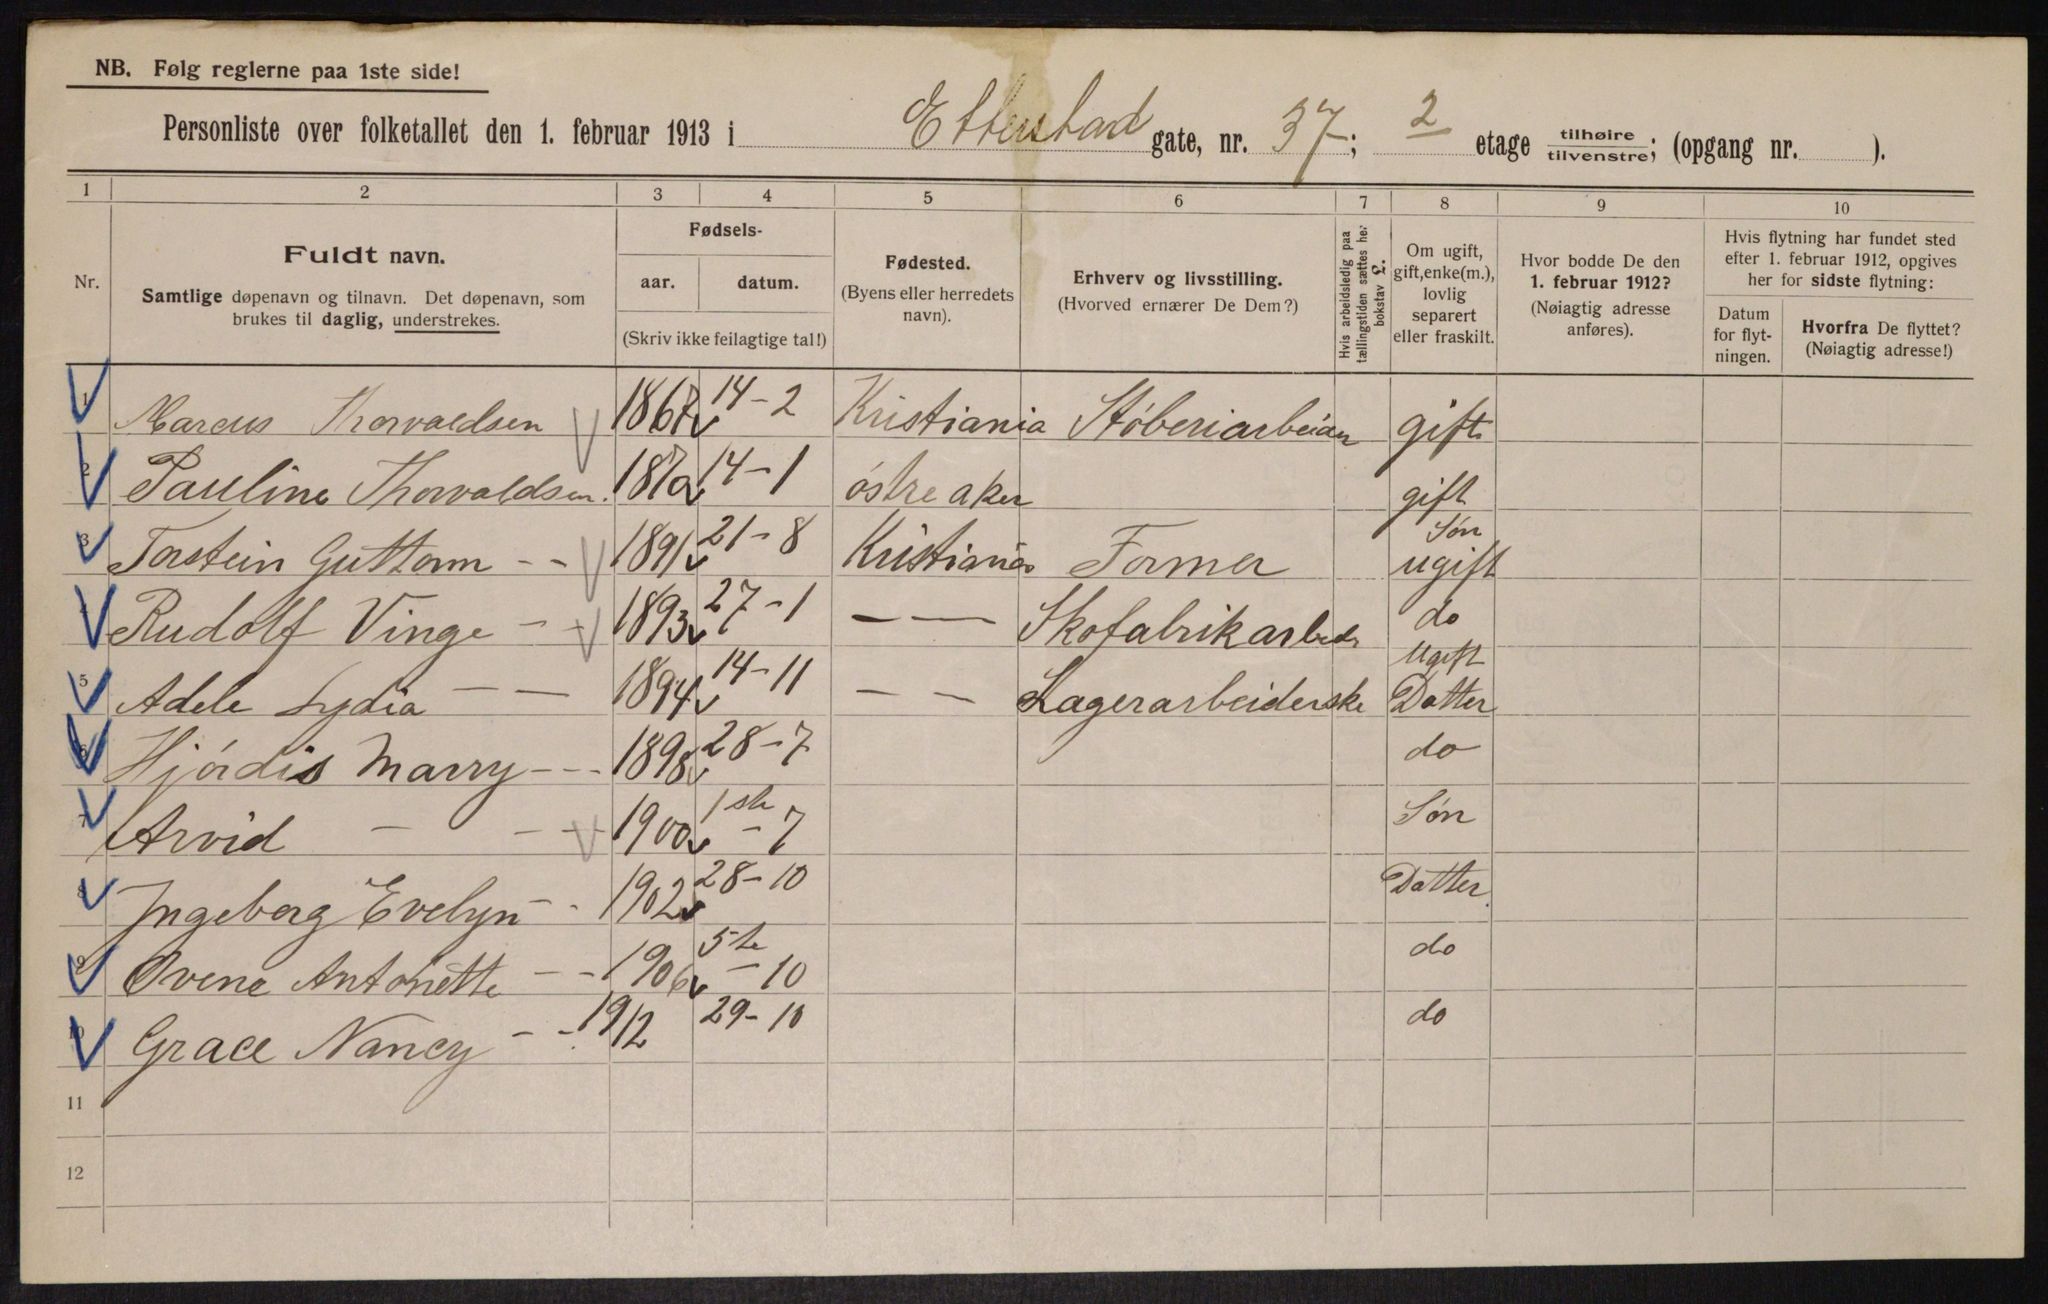 NB. Følg reglerne paa 1ste side!
Personliste over folketallet den 1. februar 1913 i Etterstad gate, nr. 37; 2 etage tilhøire tilvenstre; (opgang nr. ).
1 2 3 4 5 6 7 8 9 10
Nr.
Fuldt navn.
Samtlige døpenavn og tilnavn. Det døpenavn, som
brukes til daglig, understrekes.
Fødsels-
aar. datum.
(Skriv ikke feilagtige tal!)
Fødested.
(Byens eller herredets
navn).
Erhverv og livsstilling.
(Hvorved ernærer De Dem?)
Hvis arbeidsledig paa
tællingstiden sættes her
bokstav L.
Om ugift,
gift, enke(m.),
lovlig
separert
eller fraskilt.
Hvor bodde De den
1. februar 1912?
(Nøiagtig adresse
anføres).
Hvis flytning har fundet sted
efter 1. februar 1912, opgives
her for sidste flytning:
Datum
for flyt-
ningen.
Hvorfra De flyttet?
(Nøiagtig adresse!)
1 Marcus Thorvaldsen 1867 14-2 Kristiania Støberiarbeider gift
2 Pauline Thorvaldsen. 1870 14-1 østre aker gift
3 Torstein Guttorm - - 1891 21-8 Kristiania Former Søn ugift
4 Rudolf Vinge - - 1893 27-1 - - Skofabrikarbeider do ugift
5 Adele Lydia - - 1894 14-11 - - Lagerarbeiderske Datter
6 Hjórdis Marry - - 1898 28-7 do
7 Arvid - - - 1900 1ste - 7 Søn
8 Ingeborg Evelyn - - 1902 28-10 Datter.
9 Ovene Antonette - - 1906 5te - 10 do
10 Grace Nancy - - 1912 29-10 do
11
12